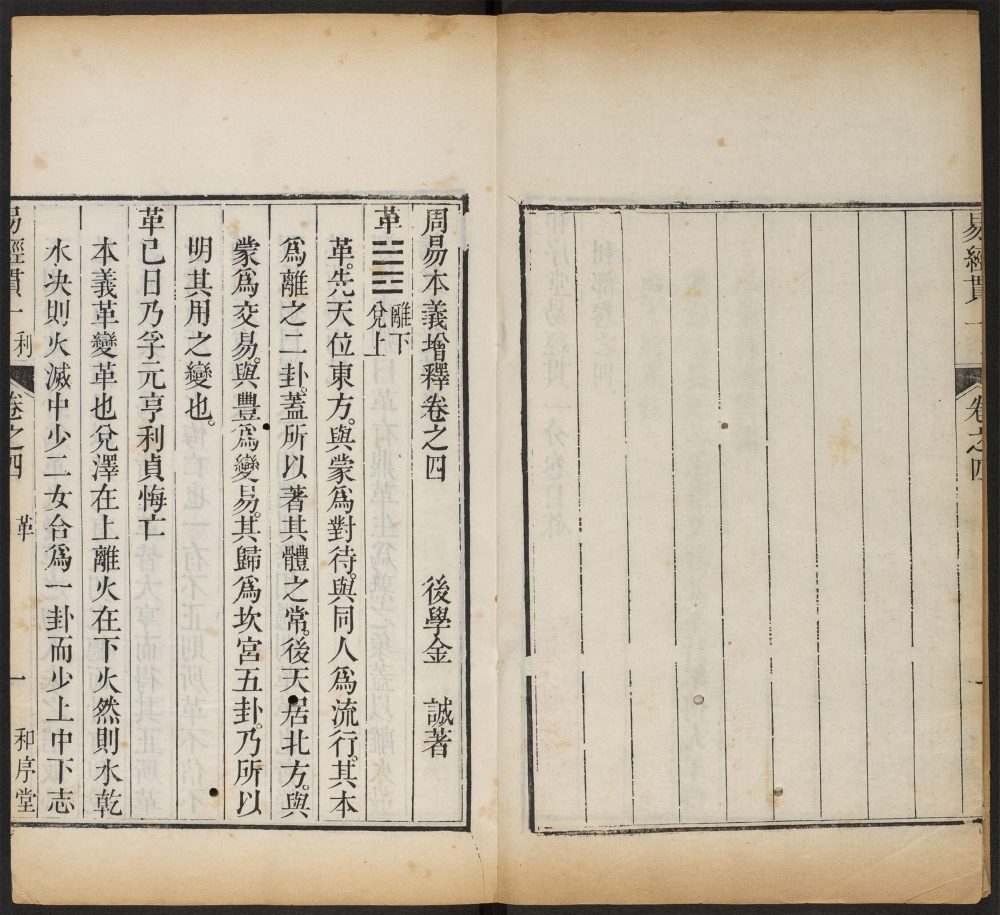 易經貫一
卷之四
周易本義增釋卷之四 後學金 誠著
革 離下兌上
革先天位東方。與蒙爲對待。與同人爲流行。其本
爲離之二卦。蓋所以著其體之常。後天居北方。與
蒙爲交易。與豐爲變易。其歸爲坎宮五卦。乃所以
明其用之變也。
革已日乃孚元亨利貞悔亡
本義革變革也兌澤在上離火在下火然則水乾
水決則火滅中少二女合爲一卦而少上中下志
易經貫一 利 卷之四 革 一 和序堂